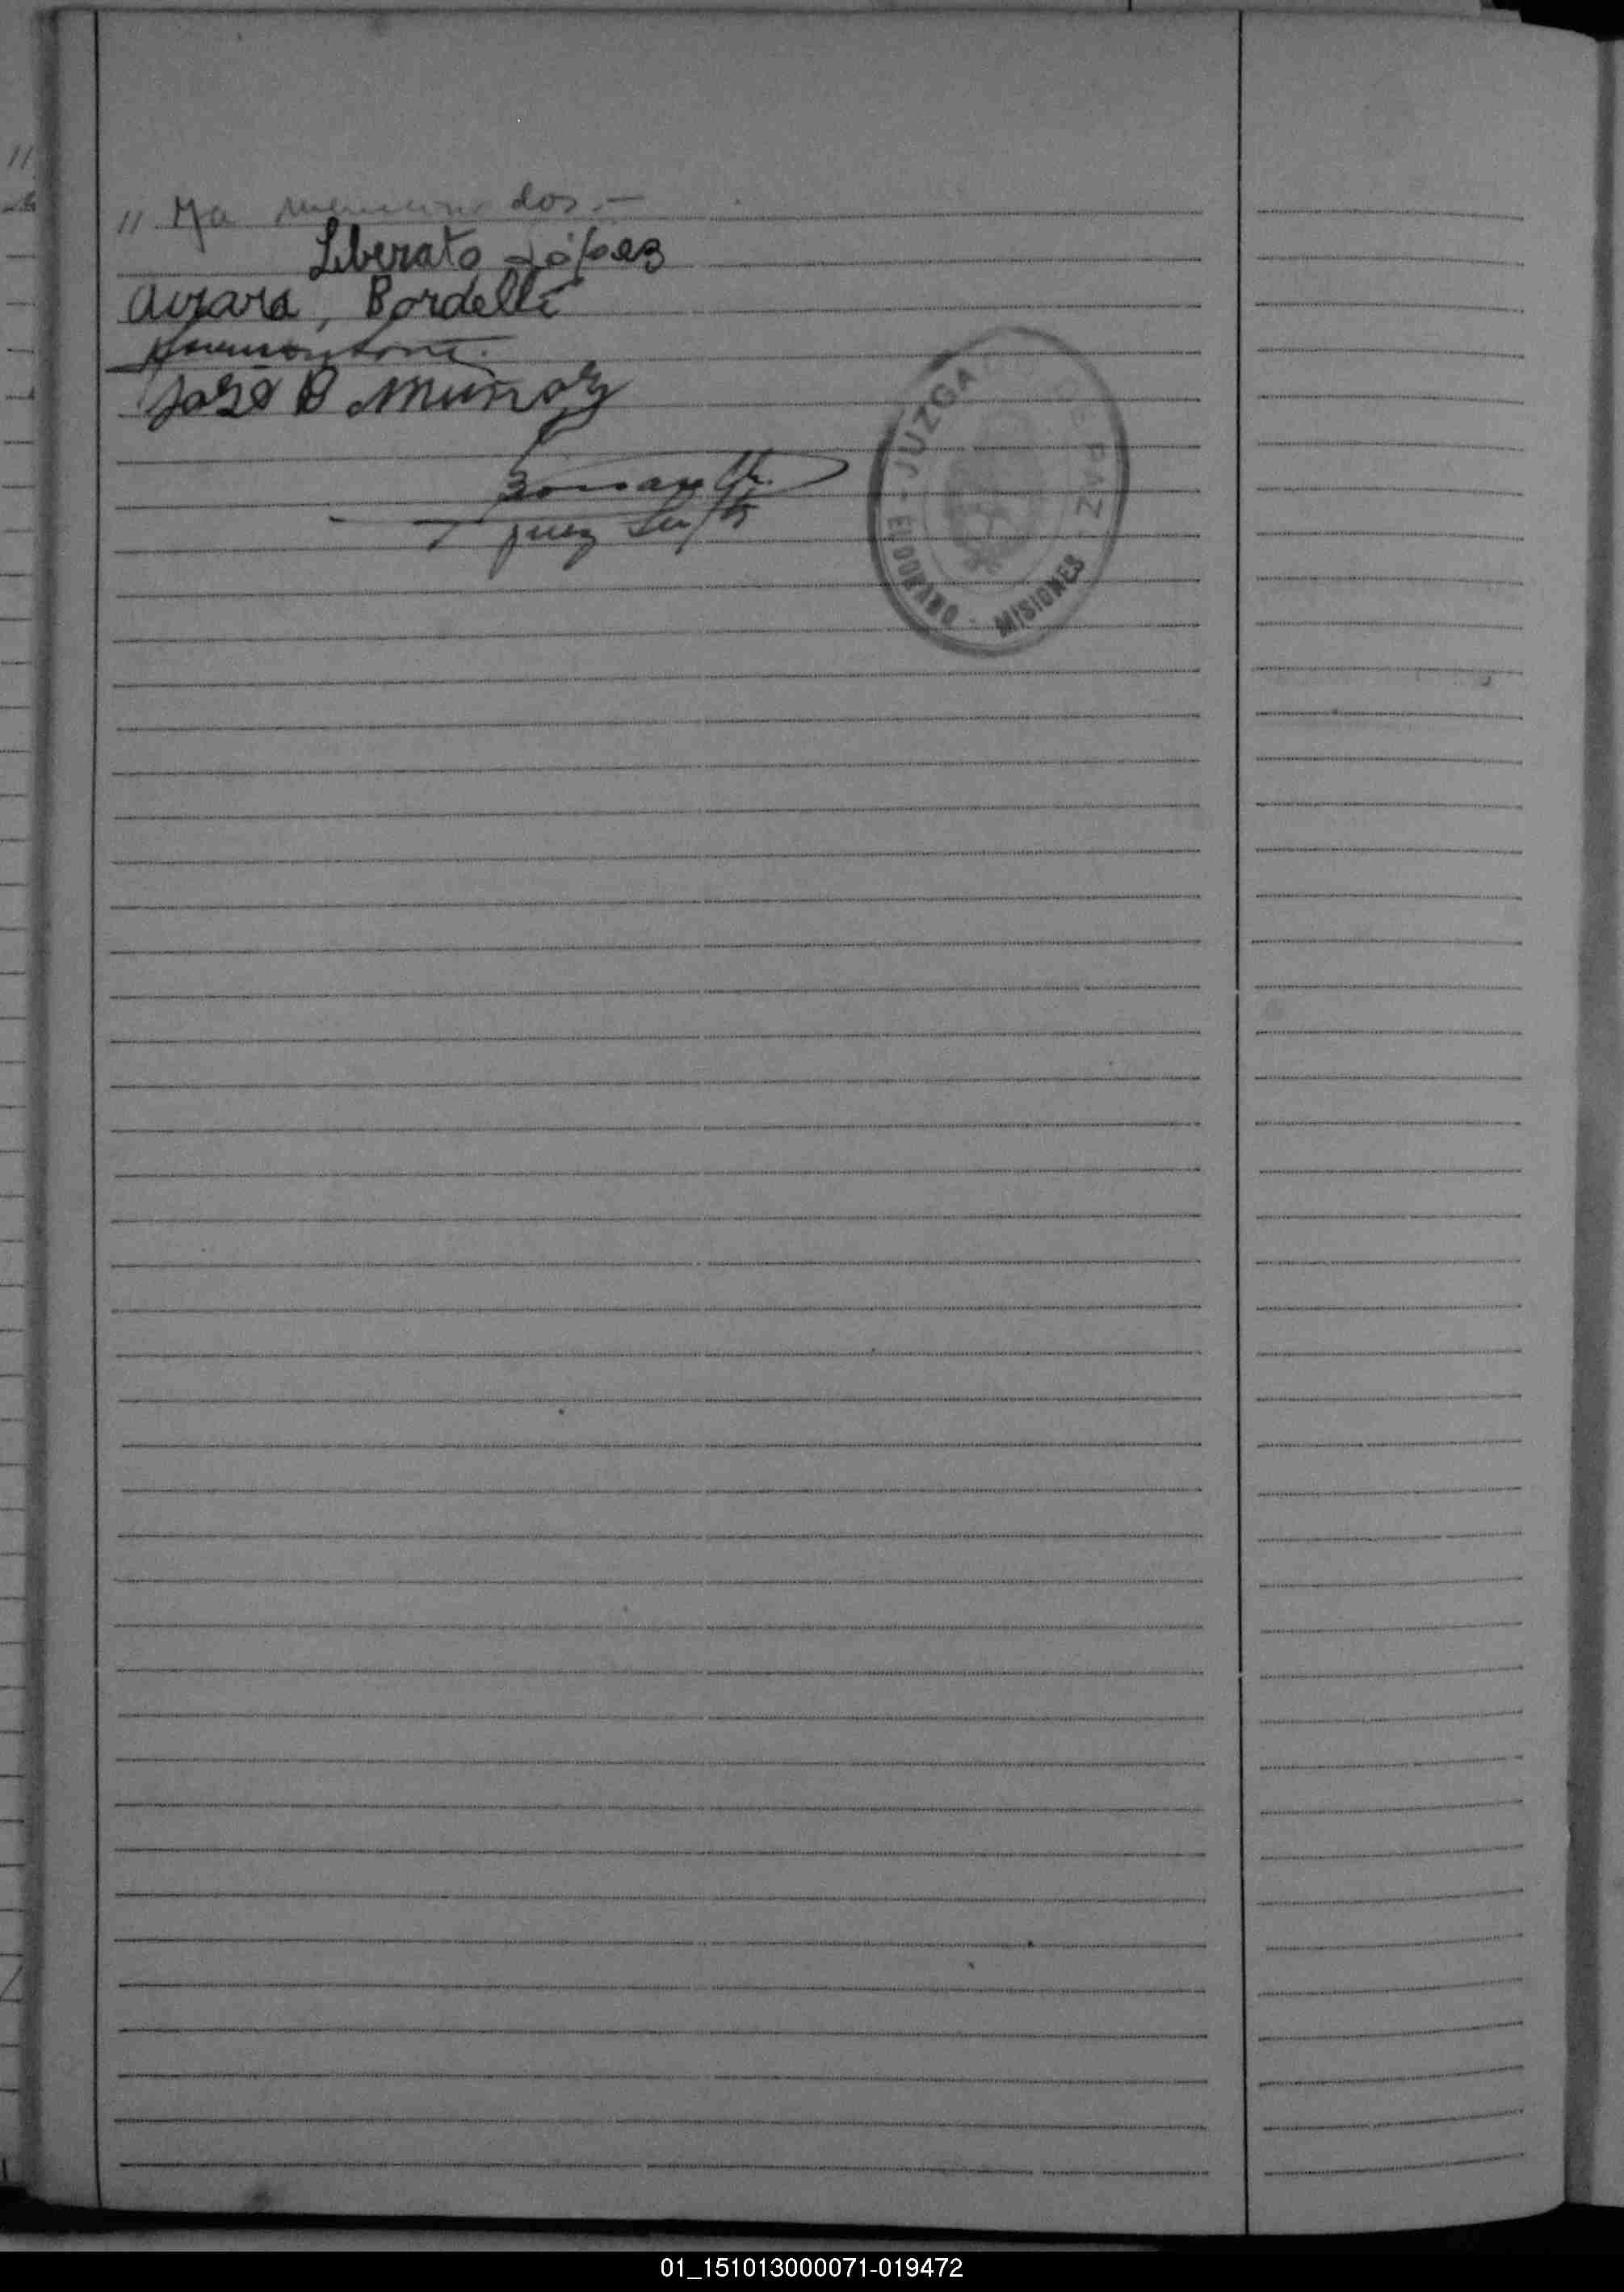 // Ya mencionados.-
Liberato López
Aurara, Bordelli
José B Muñoz
Juez Supte
JUZGADO DE PAZ
ELDORADO - MISIONES
01_151013000071-019472